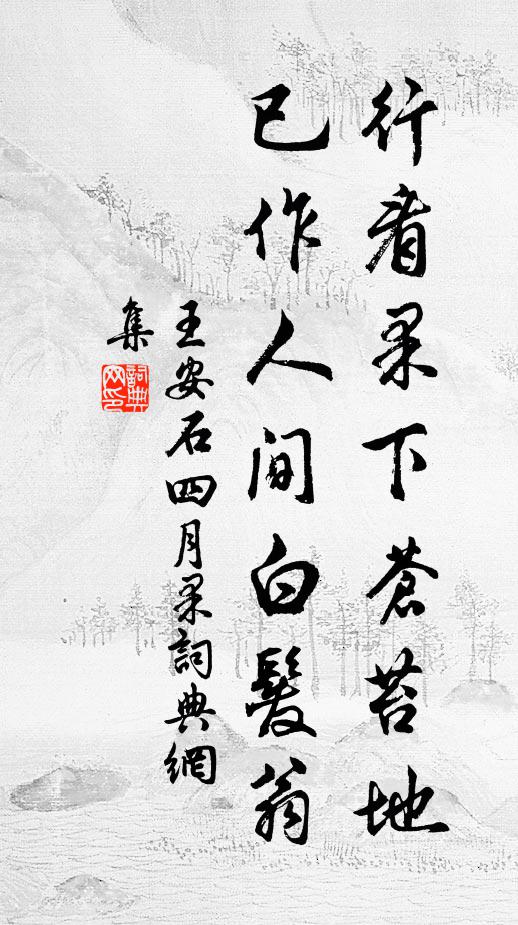 行看果下蒼苔地
已作人間白髮翁
王安石四月果詞典網
集
詞典
网印